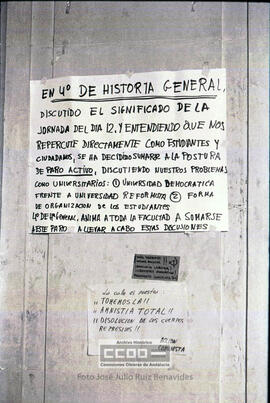 EN 4º DE HISTORIA GENERAL,
DISCUTIDO EL SIGNIFICADO DE LA
JORNADA DEL DIA 12, Y ENTENDIENDO QUE NOS
REPERCUTE DIRECTAMENTE COMO ESTUDIANTES Y
CIUDADANOS, SE HA DECIDIDO SUMARSE A LA POSTURA
DE PARO ACTIVO, DISCUTIENDO NUESTROS PROBLEMAS
COMO UNIVERSITARIOS: ① UNIVERSIDAD DEMOCRATICA
FRENTE A UNIVERSIDAD REFORMISTA ② FORMA
DE ORGANIZACION DE LOS ESTUDIANTES
4º DE Hª GENERAL, ANIMA A TODA LA FACULTAD A SUMARSE
A ESTE PARO Y A LLEVAR A CABO ESTAS DISCUSIONES
La calle es nuestra
¡¡ TOMEMOSLA !!
¡¡ AMNISTIA TOTAL !!
¡¡ DISOLUCION DE LOS CUERPOS
REPRESIVOS !!
ACCION
COMUNISTA
Archivo Histórico
CCOO
Comisiones Obreras de Andalucía
Foto José Julio Ruiz Benavides